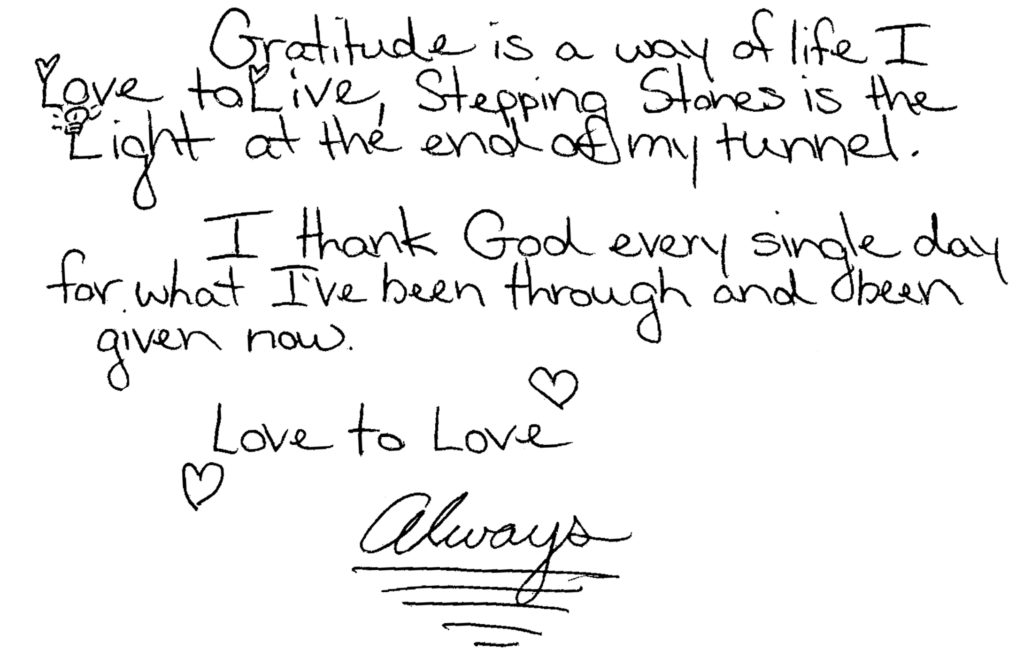 Gratitude is a way of life I
Love to Live, Stepping Stones is the
Light at the end of my tunnel.
I thank God every single day
for what I've been through and been
given now.
Love to Love
Always